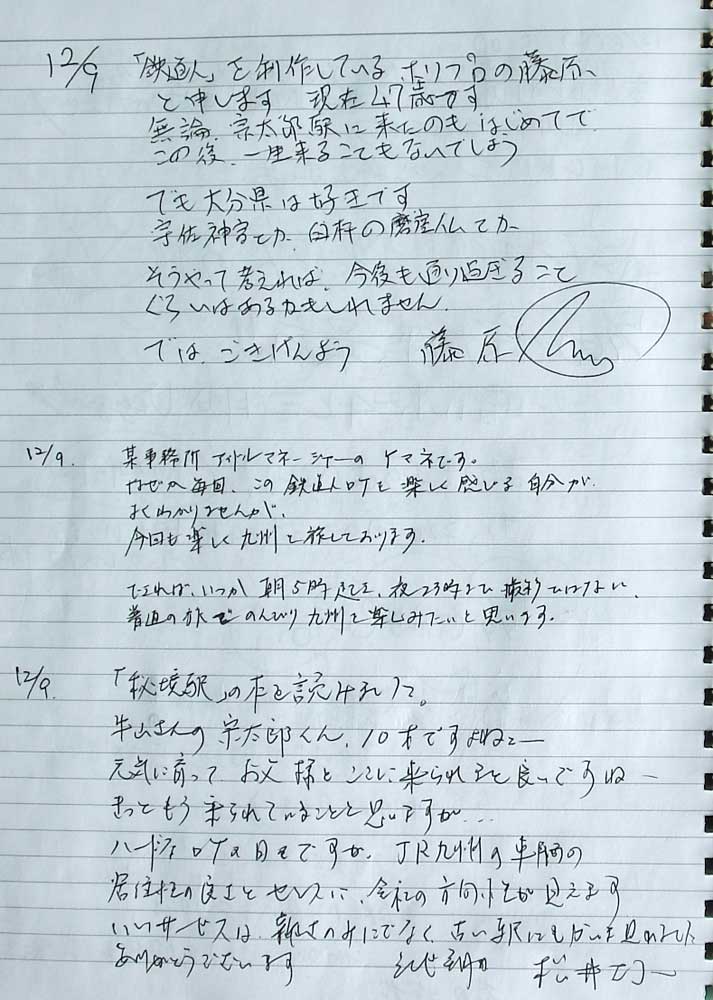 12/9 「鉄道人」を制作しているホリプロの藤原、
と申します 現在47歳です
無論、宗太郎駅に来たのもはじめてで
この後、一生来ることもないでしょう
でも大分県は好きです
宇佐神宮とか、臼杵の磨崖仏とか、
そうやって考えれば、今後も通り過ぎること
ぐらいはあるかもしれません
では、ごきげんよう 藤原
12/9. 某事務所アイドルマネージャーのケマネです。
なぜか毎回、この鉄道人ロケを楽しく感じる自分が、
よくわかりませんが、
今回も楽しく九州を旅しております。
できれば、いつか朝5時起き、夜23時まで撮影ではない、
普通の旅でのんびり九州を楽しみたいと思います。
12/9. 「秘境駅」の本を読みまして。
牛山さんの宗太郎くん、10才ですよね
元気に育ってお父様とここに来られると良いですね
きっともう来られていることと思いますが...
ハードなロケの日々ですが、JR九州の車両の
居住性の良さとセンスに、会社の方向性が見えます
いいサービスは、新しさのみでなく、古い駅にも
ありがとうございます 松井